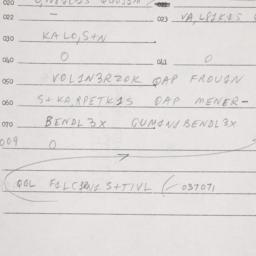 020
022 - 023 VA, LPIKIS
030 KALO, S+N
040 O 041 O
050 VOL1N3RZOK QAP FROUGN
060 S+KO, RPETK1S QAP MENER-
070 BENDL3X GUMINIBENDL3X
009 O
QOL F1LC S+TIVL (-037071